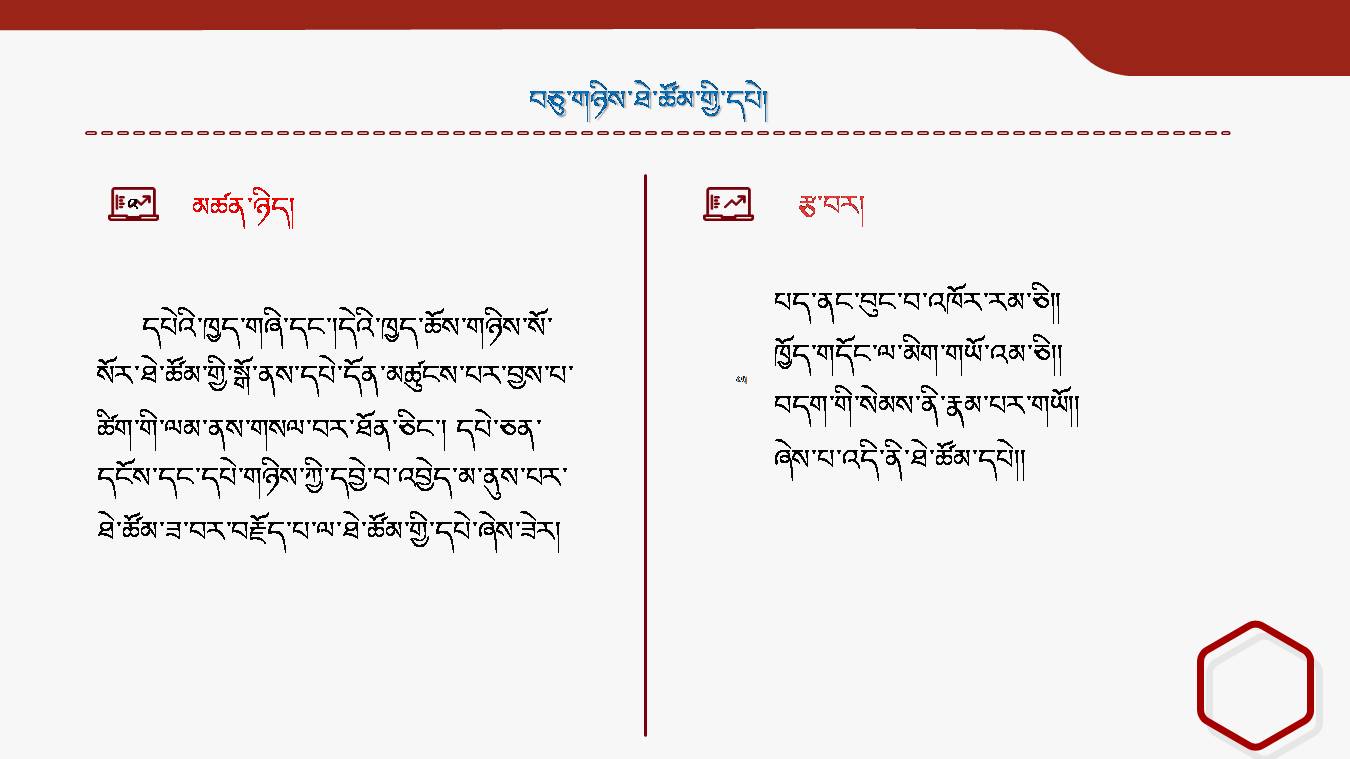 བཅུ་གཉིས་ཐེ་ཚོམ་གྱི་དཔེ།
མཚན་ཉིད།
དཔེའི་ཁྱད་གཞི་དང་།དེའི་ཁྱད་ཆོས་གཉིས་སོ་
སོར་ཐེ་ཚོམ་གྱི་སྒོ་ནས་དཔེ་དོན་མཚུངས་པར་བྱས་པ་
ཚིག་གི་ལམ་ནས་གསལ་བར་ཐོན་ཅིང་། དཔེ་ཅན་
དངོས་དང་དཔེ་གཉིས་ཀྱི་དབྱེ་བ་འབྱེད་མ་ནུས་པར་
ཐེ་ཚོམ་ཟ་བར་བརྗོད་པ་ལ་ཐེ་ཚོམ་གྱི་དཔེ་ཞེས་ཟེར།
རྩ་བར།
པད་ནང་བུང་བ་འཁོར་རམ་ཅི།།
ཁྱོད་གདོང་ལ་མིག་གཡོ་འམ་ཅི།།
བདག་གི་སེམས་ནི་རྣམ་པར་གཡོ།།
ཞེས་པ་འདི་ནི་ཐེ་ཚོམ་དཔེ།།